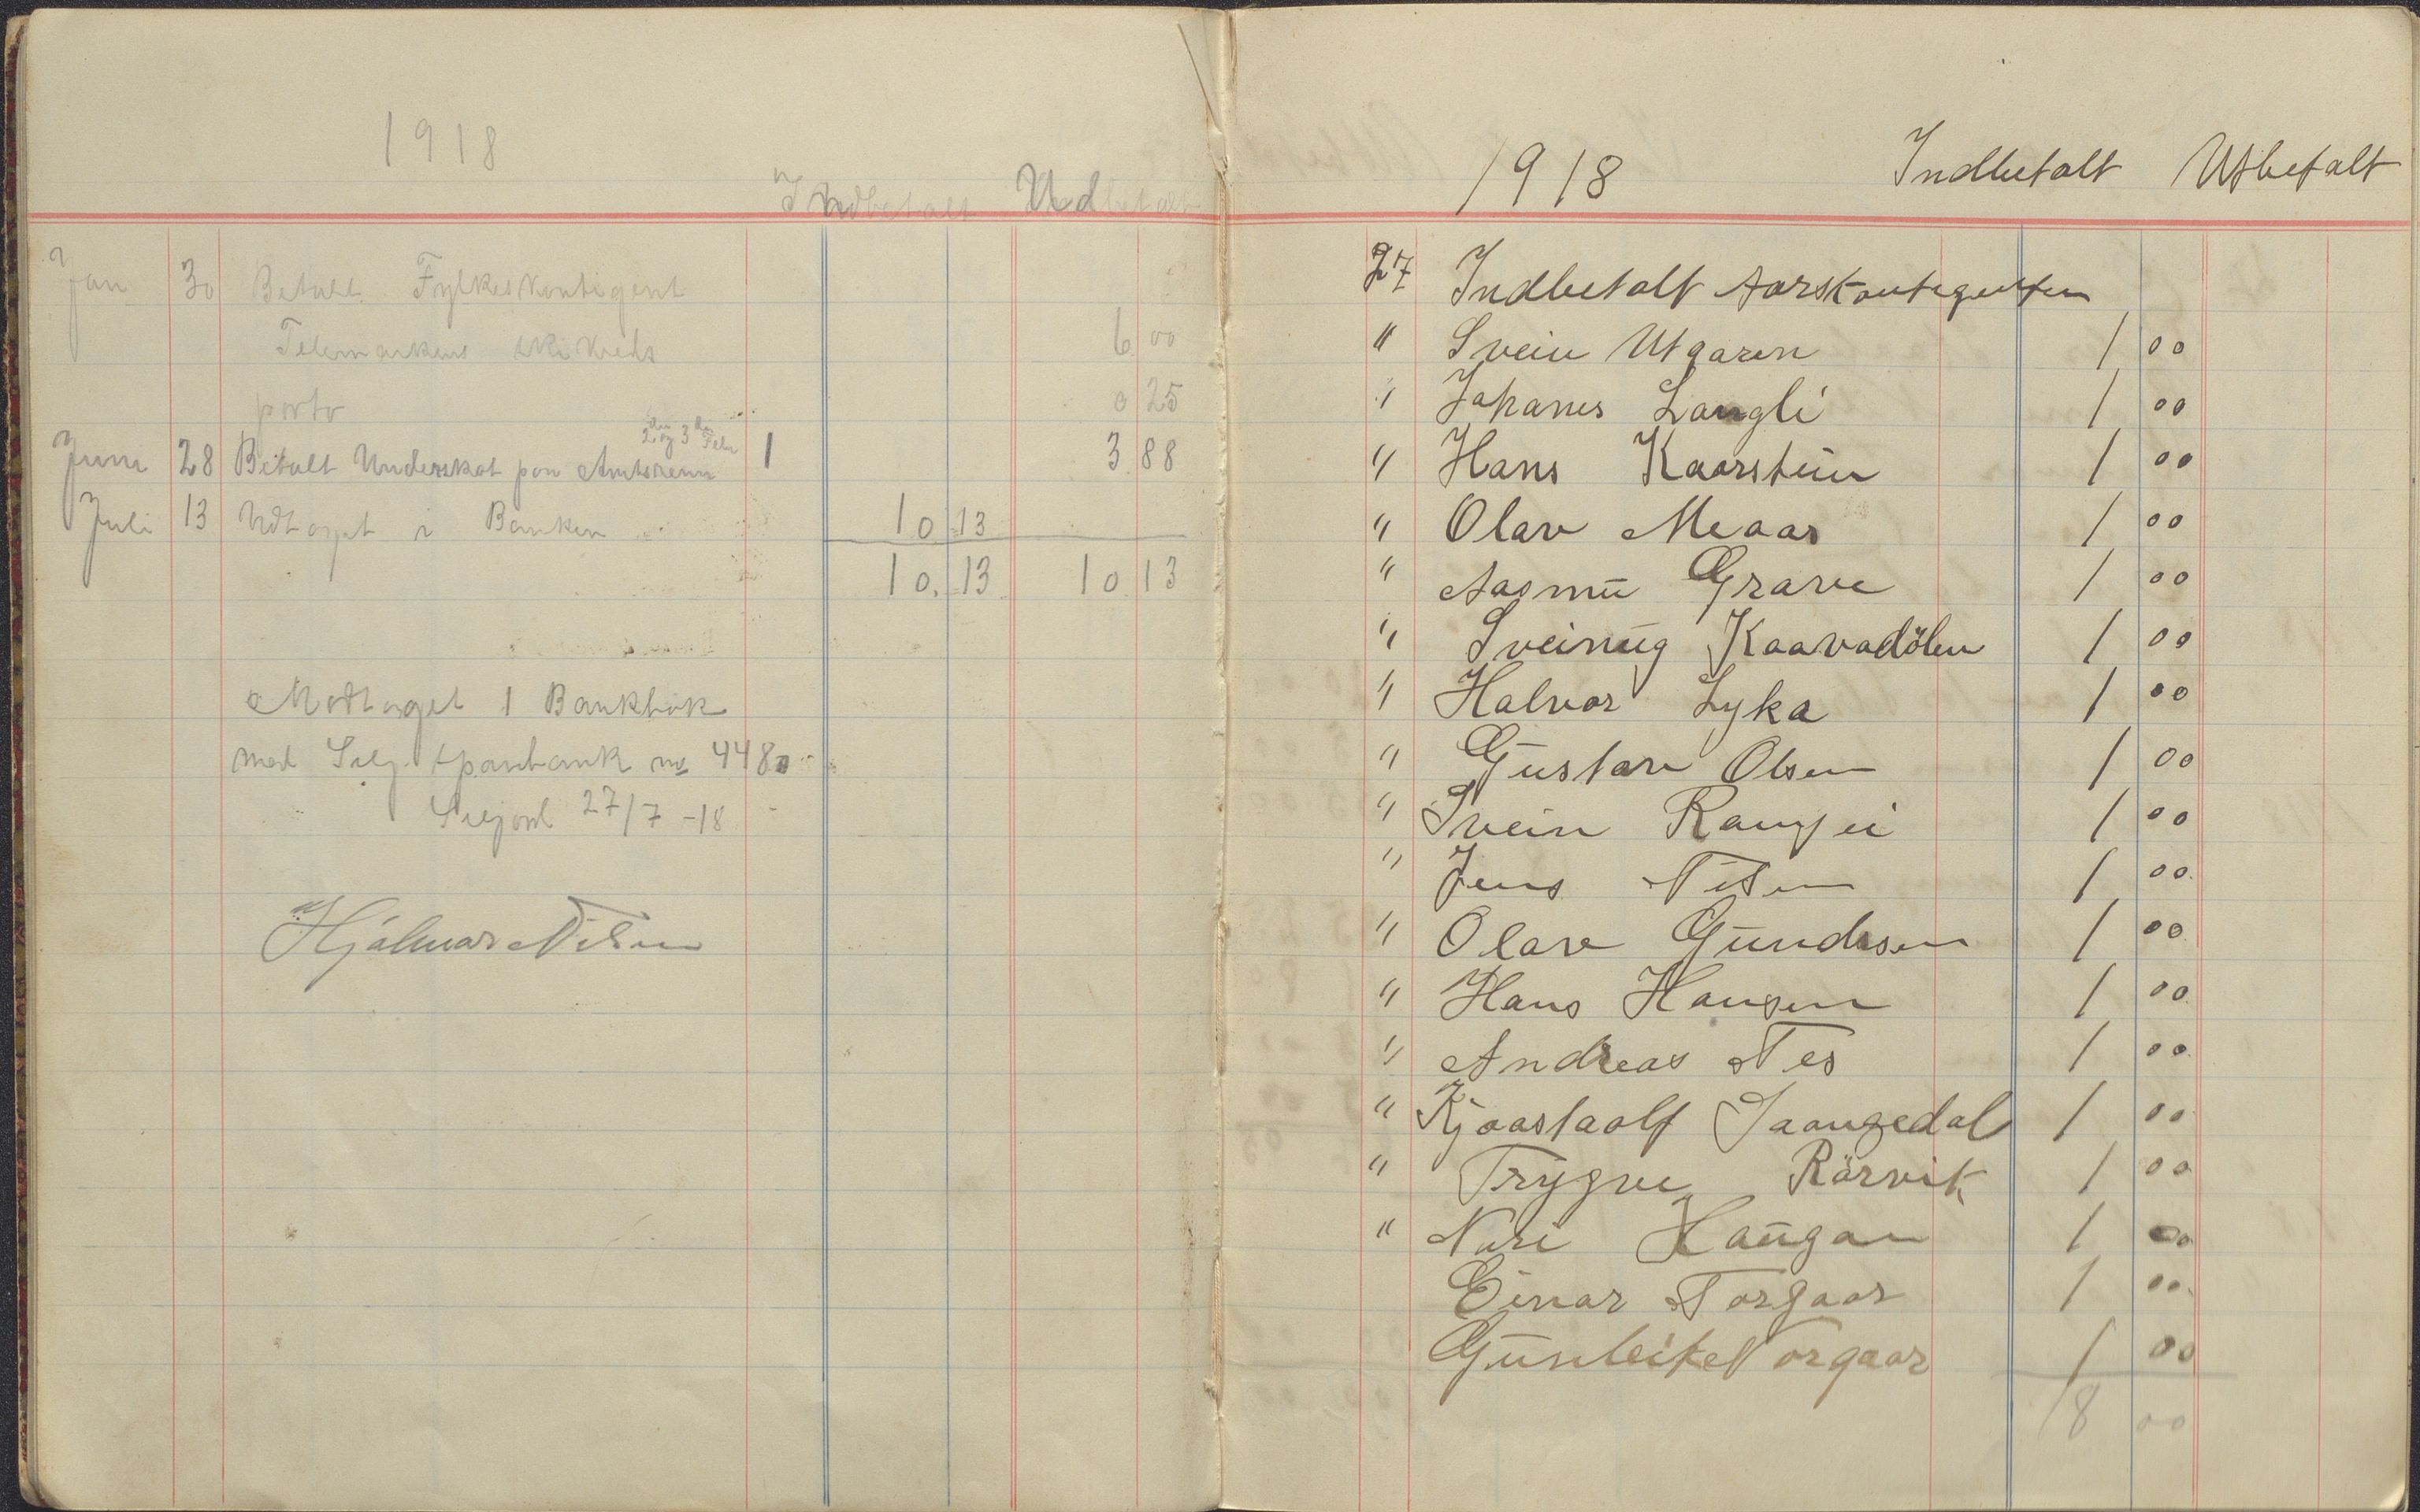 1918
Indbetalt Udbetalt
Jan 30 Betalt Fylkeskontigent
Telemarkens skikreds 6 00
porto 0 25
2den og 3die Febr
Juni 28 Betalt Underskot paa Amtsrenn 1 3 88
Juli 13 Udtaget i Banken 10 13
10. 13 10 13
Modtaget 1 Bankbok
med Selj. sparbank no 4480
Seljord 27/7 -18
Hjalmar Nilsen
1918 Indbetalt Utbetalt
27 Indbetalt Aarskontigenten
" Svein Utgaren 1 00
" Johanes Langli 1 00
" Hans Kaarstein 1 00
" Olav Meaas 1 00
" Aasmu Grave 1 00
" Sveinug Kaavadölen 1 00
" Halvor Lyka 1 00
" Gustav Olsen 1 00
" Svein 1 00
" Jens Nilsen 1 00
" Olav Gundersen 1 00
" Hans Hansen 1 00
" Andreas Nes 1 00
" Kjoastaalf 1 00
" Trygve Rörvik 1 00
" Haugan 1 00
Einar Norgaar 1 00
Gunleik Norgaar 1 00
18 00